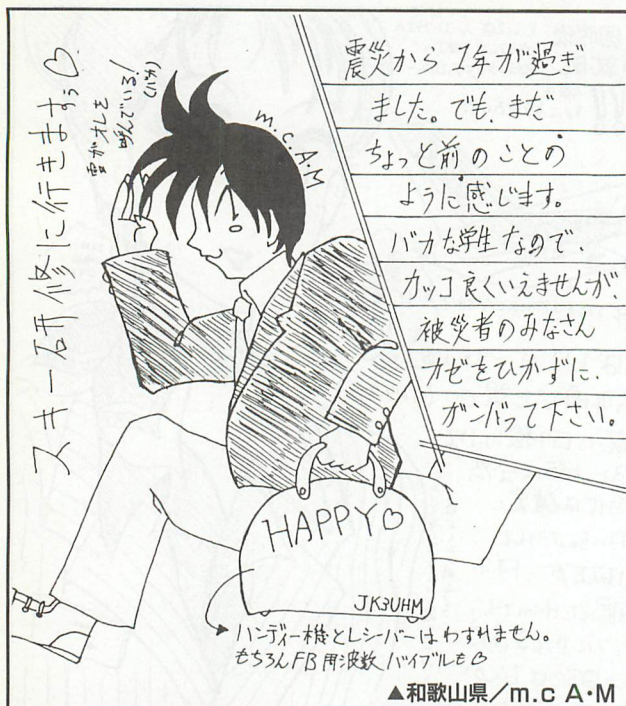 スキー研修に行きますぅ♡
雪がオレを
呼んでいる!
(バカ)
m.c.A.M
震災から1年が過ぎ
ました。でも、まだ
ちょっと前のことの
ように感じます。
バカな学生なので、
カッコ良くいえませんが、
被災者のみなさん
カゼをひかずに、
ガンバって下さい。
HAPPY♡
JK3UHM
ハンディー機とレシーバーはわすれません。
もちろんFB周波数バイブルも♡
▲和歌山県/m.c A・M